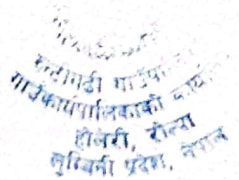 रुन्टीगढी गाउँपालिका
गाउँकार्यपालिकाको कार्यालय
होलेरी, रोल्पा
लुम्बिनी प्रदेश, नेपाल